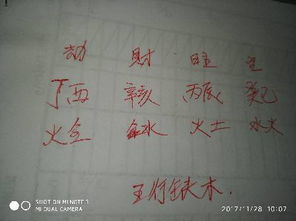 劫 財 日主
丁酉 辛亥 丙辰 癸巳
火金 金水 火土 水火
五行缺木.
SHOT ON MI NOTE 3
MI DUAL CAMERA
2017/11/28 10:07